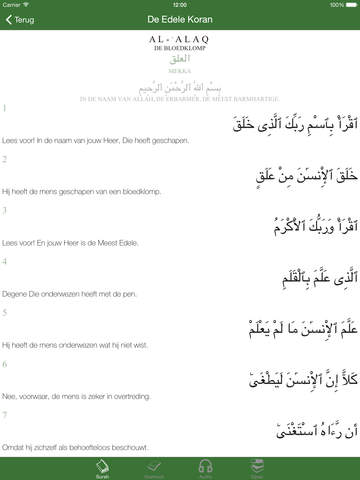 12:00
100%
Terug
De Edele Koran
AL-`ALAQ
DE BLOEDKLOMP
العلق
MEKKA
بِسْمِ ٱللَّهِ ٱلرَّحْمَٰنِ ٱلرَّحِيمِ
IN DE NAAM VAN ALLAH, DE ERBARMER, DE MEEST BARMHARTIGE.
1
ٱقْرَأْ بِٱسْمِ رَبِّكَ ٱلَّذِى خَلَقَ
Lees voor! In de naam van jouw Heer, Die heeft geschapen,
2
خَلَقَ ٱلْإِنسَٰنَ مِنْ عَلَقٍ
Hij heeft de mens geschapen van een bloedklomp.
3
ٱقْرَأْ وَرَبُّكَ ٱلْأَكْرَمُ
Lees voor! En jouw Heer is de Meest Edele.
4
ٱلَّذِى عَلَّمَ بِٱلْقَلَمِ
Degene Die onderwezen heeft met de pen.
5
عَلَّمَ ٱلْإِنسَٰنَ مَا لَمْ يَعْلَمْ
Hij heeft de mens onderwezen wat hij niet wist.
6
كَلَّآ إِنَّ ٱلْإِنسَٰنَ لَيَطْغَىٰٓ
Nee, voorwaar, de mens is zeker in overtreding.
7
أَن رَّءَاهُ ٱسْتَغْنَىٰٓ
Omdat hij zichzelf als behoefteloos beschouwt.
Surah
Audio